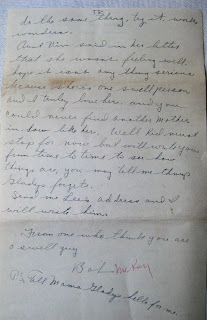 do the same thing, by it, works
wonders.
Aunt Vira said in her letter
that she wasnt feeling well.
hope it isnt any thing serious
because she is one swell person
and I truly love her. and you
could never find another Mother
in-law like her. Well Kid must
stop for now but will write you
from time to time to see how
things are, you may tell me things
Gladys forgets.
Send me Lees address and I
will write him.
From one who thinks you are
a swell guy
Bob McKay
P.S. Tell Mama Gladys hello for me.